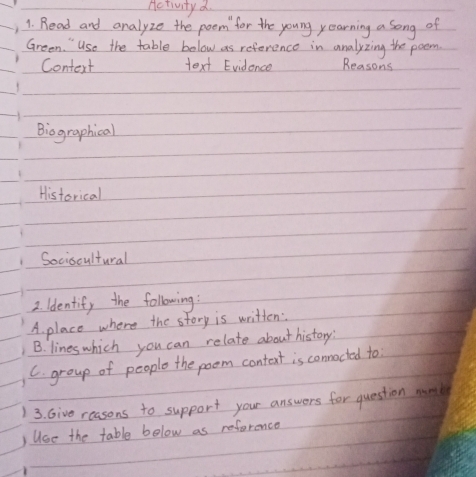 Activity 2
1. Read and analyze the poem "for the young yearning a Song of
Green." Use the table below as reference in analyzing the poem.
Context text Evidence Reasons
Biographical
Historical
Sociocultural
2. Identify the following:
A. place where the story is written:
B. lines which you can relate about history:
C. group of people the poem context is connected to:
3. Give reasons to support your answers for question
Use the table below as reference